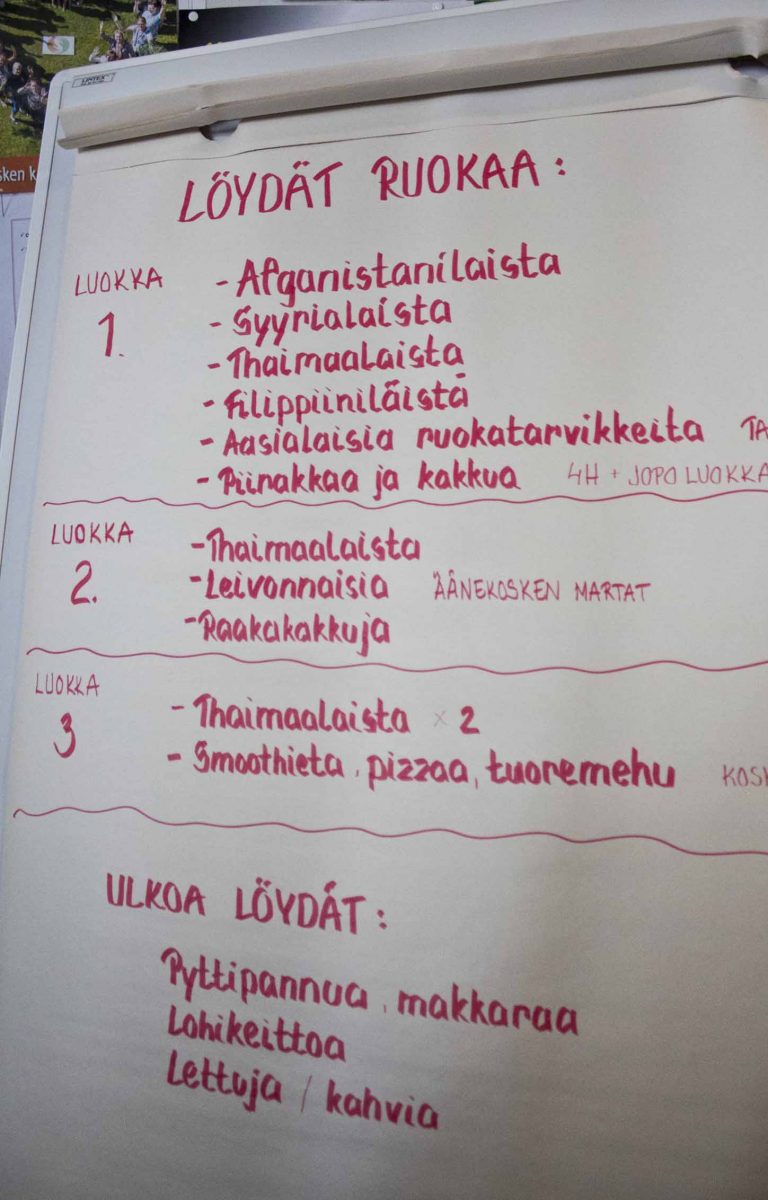 LINTEX
sken k
LÖYDÄT RUOKAA :
LUOKKA 1.
- Afganistanilaista
- Syyrialaista
- Thaimaalaista
- Filippiiniläistä
- Aasialaisia ruokatarvikkeita TA
- Piirakkaa ja kakkua 4H + JOPO LUOKKA
LUOKKA 2.
- Thaimaalaista
- Leivonnaisia ÄÄNEKOSKEN MARTAT
- Raakakakkuja
LUOKKA 3
- Thaimaalaista x 2
- Smoothieta, pizzaa, tuoremehu KOSK
ULKOA LÖYDÄT :
Pyttipannua, makkaraa
Lohikeittoa
Lettuja / kahvia